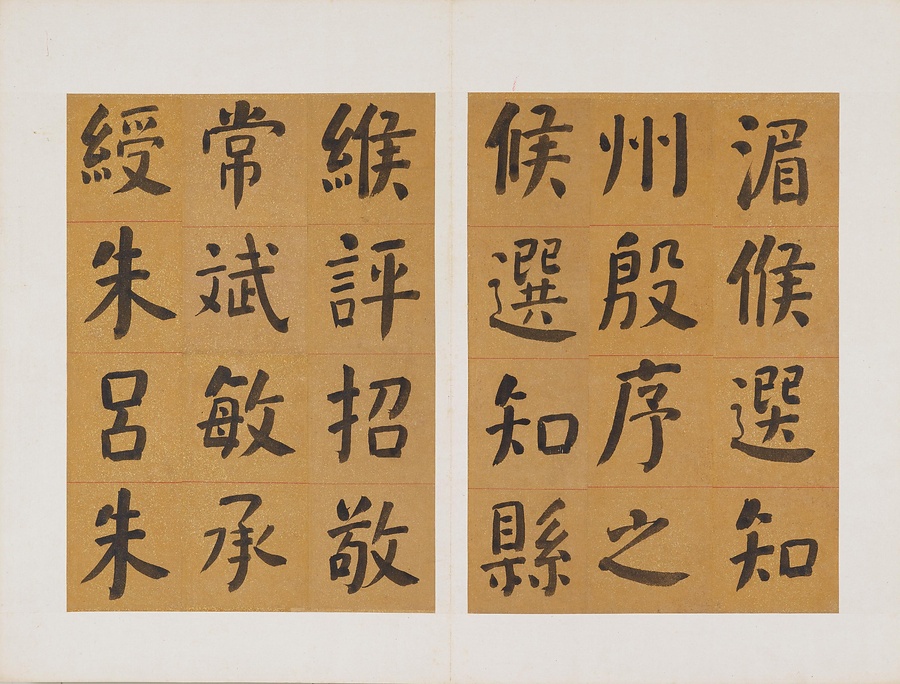 湄候選知
州殷序之
候選知縣
維評招敬
常斌敏承
綬朱呂朱